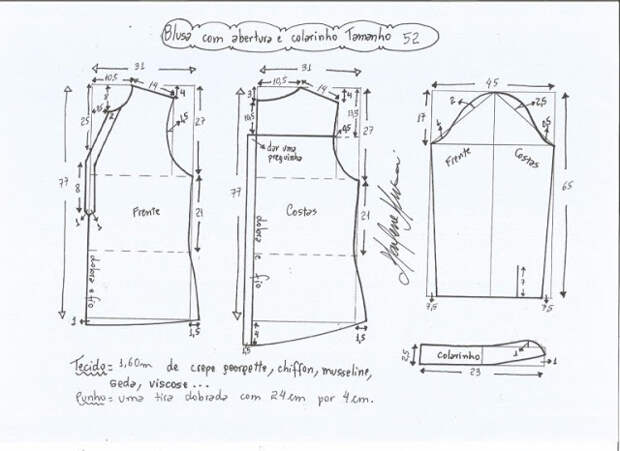 Blusa com abertura e colarinho Tamanho 52
31
10,5
14
4
8
2
25
1,5
27
77
8
21
Frente
dobra e fio
1
1
1
1,5
31
10,5
14
3
4
10,5
13,5
0,5
27
dar uma
preguinha
77
21
Costas
dobra e fio
4
1,5
1,5
45
17
2
2,5
0,5
Frente
Costas
65
7
7,5
7,5
2,5
Colarinho
1
1
23
Tecido = 1,60m de crepe georgette, chiffon, musseline,
seda, viscose ...
Punho = uma tira dobrada com 24cm por 4cm.